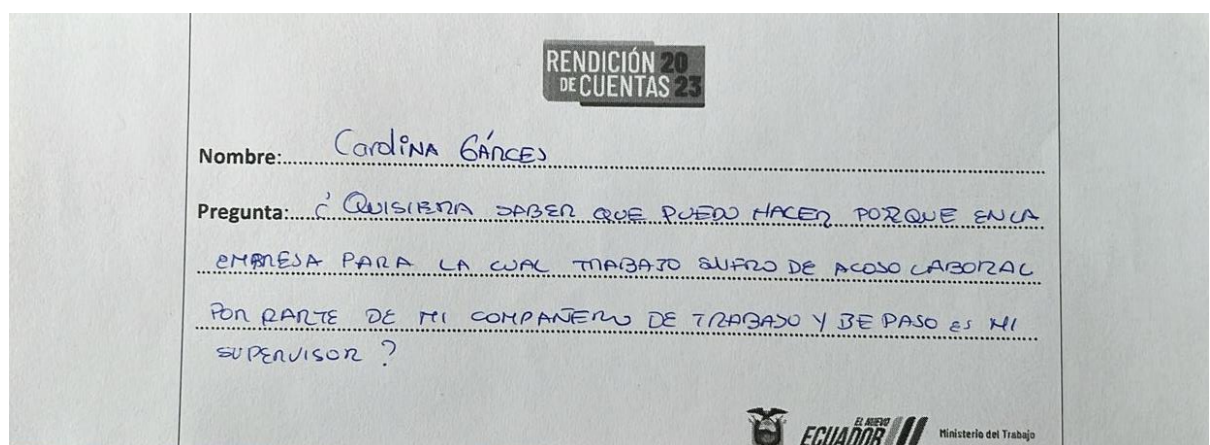 RENDICIÓN 20
DE CUENTAS 23
Nombre: Carolina GÁRCES
Pregunta: ¿ QUISIERA SABER QUE PUEDO HACER PORQUE EN LA
EMPRESA PARA LA CUAL TRABAJO SUFRO DE ACOSO LABORAL
POR PARTE DE MI COMPAÑERO DE TRABAJO Y DE PASO ES MI
SUPERVISOR ?
EL NUEVO
ECUADOR
Ministerio del Trabajo